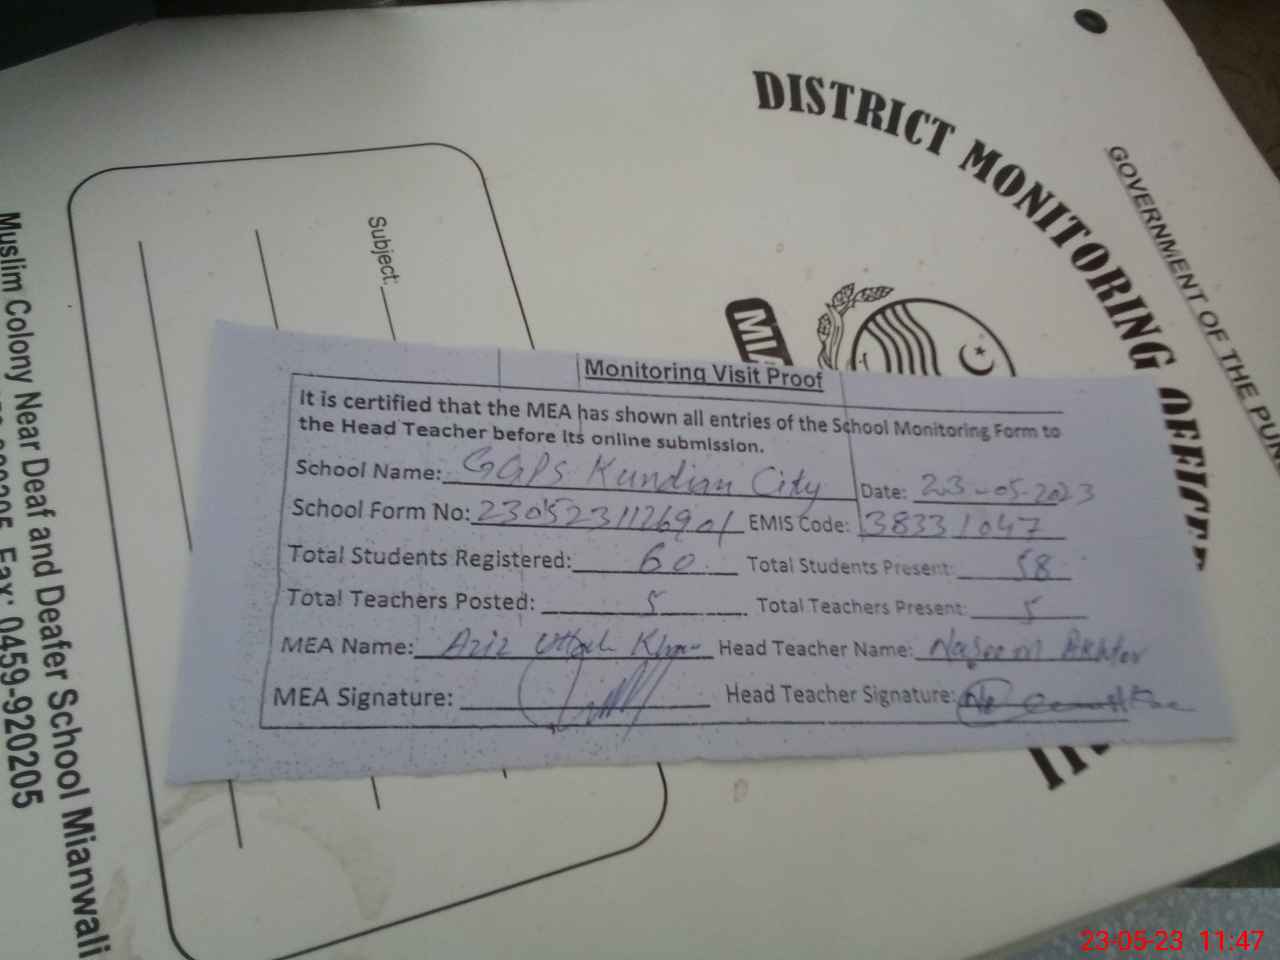 DISTRICT MONITORING OFFICE
GOVERNMENT OF THE PUN
MIA
Subject:
Muslim Colony Near Deaf and Deafer School Mianwali
Fax: 0459-920205
Monitoring Visit Proof
It is certified that the MEA has shown all entries of the School Monitoring Form to
the Head Teacher before its online submission.
School Name: GGPS Kundian City Date: 23-05-2023
School Form No: 2305231126901 EMIS Code: 38331047
Total Students Registered: 60 Total Students Present: 58
Total Teachers Posted: 5 Total Teachers Present: 5
MEA Name: Aziz Ullah Khan Head Teacher Name: Naseem Akhter
MEA Signature: Head Teacher Signature:
23-05-23 11:47